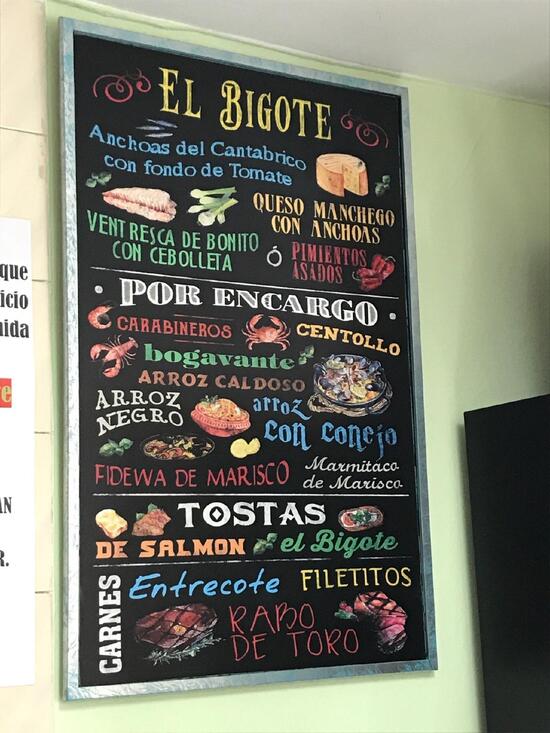 El Bigote
Anchoas del Cantabrico
con fondo de Tomate
QUESO MANCHEGO
CON ANCHOAS
VENTRESCA DE BONITO
CON CEBOLLETA
Ó PIMIENTOS
ASADOS
POR ENCARGO
CARABINEROS
CENTOLLO
bogavante
ARROZ CALDOSO
ARROZ
NEGRO
arroz
con conejo
FIDEWA DE MARISCO
Marmitaco
de Marisco
TOSTAS
DE SALMON
el Bigote
CARNES
Entrecote
FILETITOS
RABO
DE TORO
que
icio
nida
AN
R.